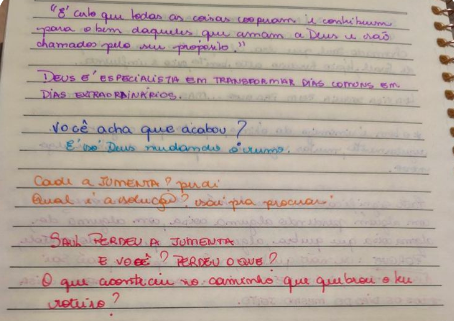 "E' certo que todas as coisas cooperam e contribuem
para o bem daqueles que amam a Deus e são
chamados pelo seu propósito."
DEUS E' ESPECIALISTA EM TRANSFORMAR DIAS COMUNS EM
DIAS EXTRAORDINÁRIOS.
VOCÊ acha que acabou?
E' só Deus mudando o rumo.
Cadê a JUMENTA? perdi
Qual é a solução? vou ir pra procurar
SAUL PERDEU A JUMENTA
E VOCÊ? PERDEU O QUE?
O que aconteceu no caminho que quebrou o seu
roteiro?